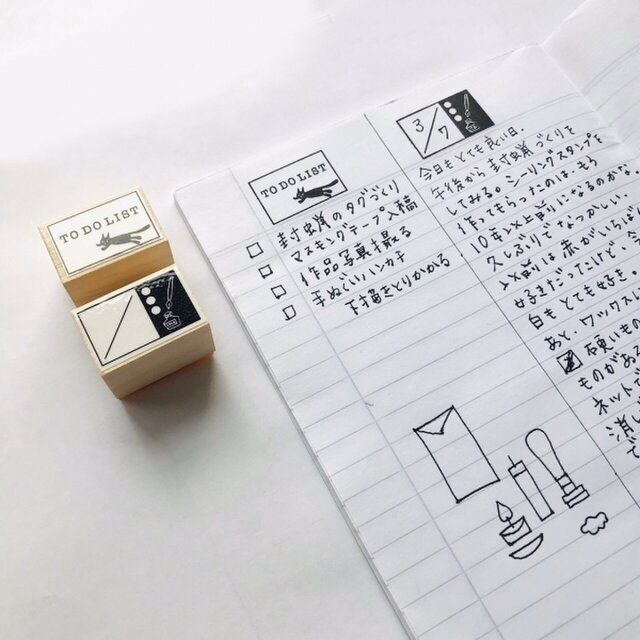 TO DO LIST
TO DO LIST
封蝋のタグづくり
マスキングテープ入稿
作品写真を撮る
手ぬぐいハンカチ
下描きとりかかる
3/7
今日もとても良い日。
午後から封蝋づくりを
してみる。シーリングスタンプを
作ってもらったのは、もう
10年以上前になるのかな。
久しぶりで なつかしい。
以前は 赤が いちば
好きだったけど
白も とても好き
あと、ワックス
硬いもの
ものがある
ネット